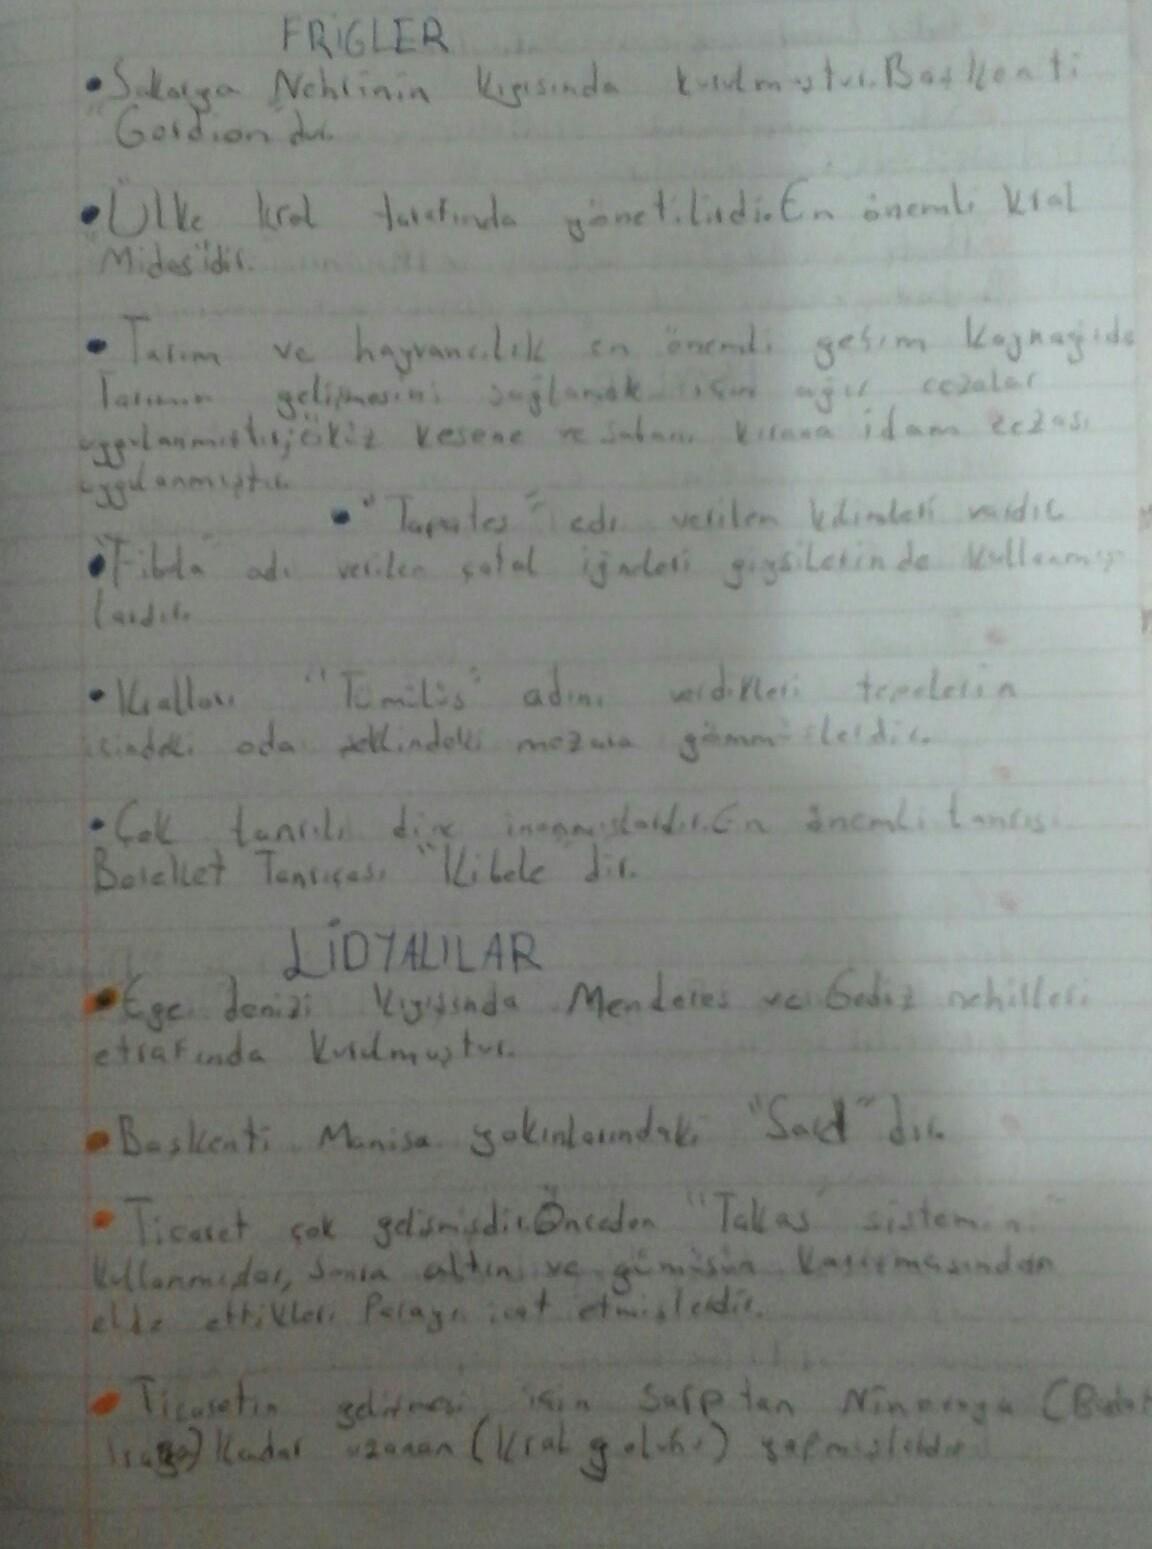 FRİGLER
• Sakarya Nehrinin kıyısında kurulmuştur. Başkenti
"Gordion"dur.
• Ülke kral tarafında yönetilirdi. En önemli kral
"Midas"idir.
• Tarım ve hayvancılık en önemli geçim kaynağıdı
Tarımın gelişmesini sağlamak için ağır cezalar
uygulanmıştır, öküz kesene ve sabanı kırana idam cezası
uygulanmıştır.
• "Tapates" adı verilen kilimleri vardır.
• "Fibula" adı verilen çatal iğneleri giysilerinde kullanmış
lardır.
• Kralları "Tümülüs" adını verdikleri tepelerin
içindeki oda şeklindeki mezara gömmüşlerdir.
• Çok tanrılı dine inanmışlardır. En önemli tanrısı
Bereket Tanrıçası "Kibele"dir.
LİDYALILAR
• Ege denizi kıyısında Menderes ve Gediz nehirleri
etrafında kurulmuştur.
• Başkenti Manisa yakınlarındaki "Sard"dır.
• Ticaret çok gelişmişdir. Önceden "Takas sistemini"
kullanmışlar, sonra altın ve gümüşün karışmasından
elde ettikleri Parayı icat etmişlerdir.
• Ticaretin gelişmesi için Sarptan Ninovaya
kadar uzanan (kral yolunu) yapmışlardır